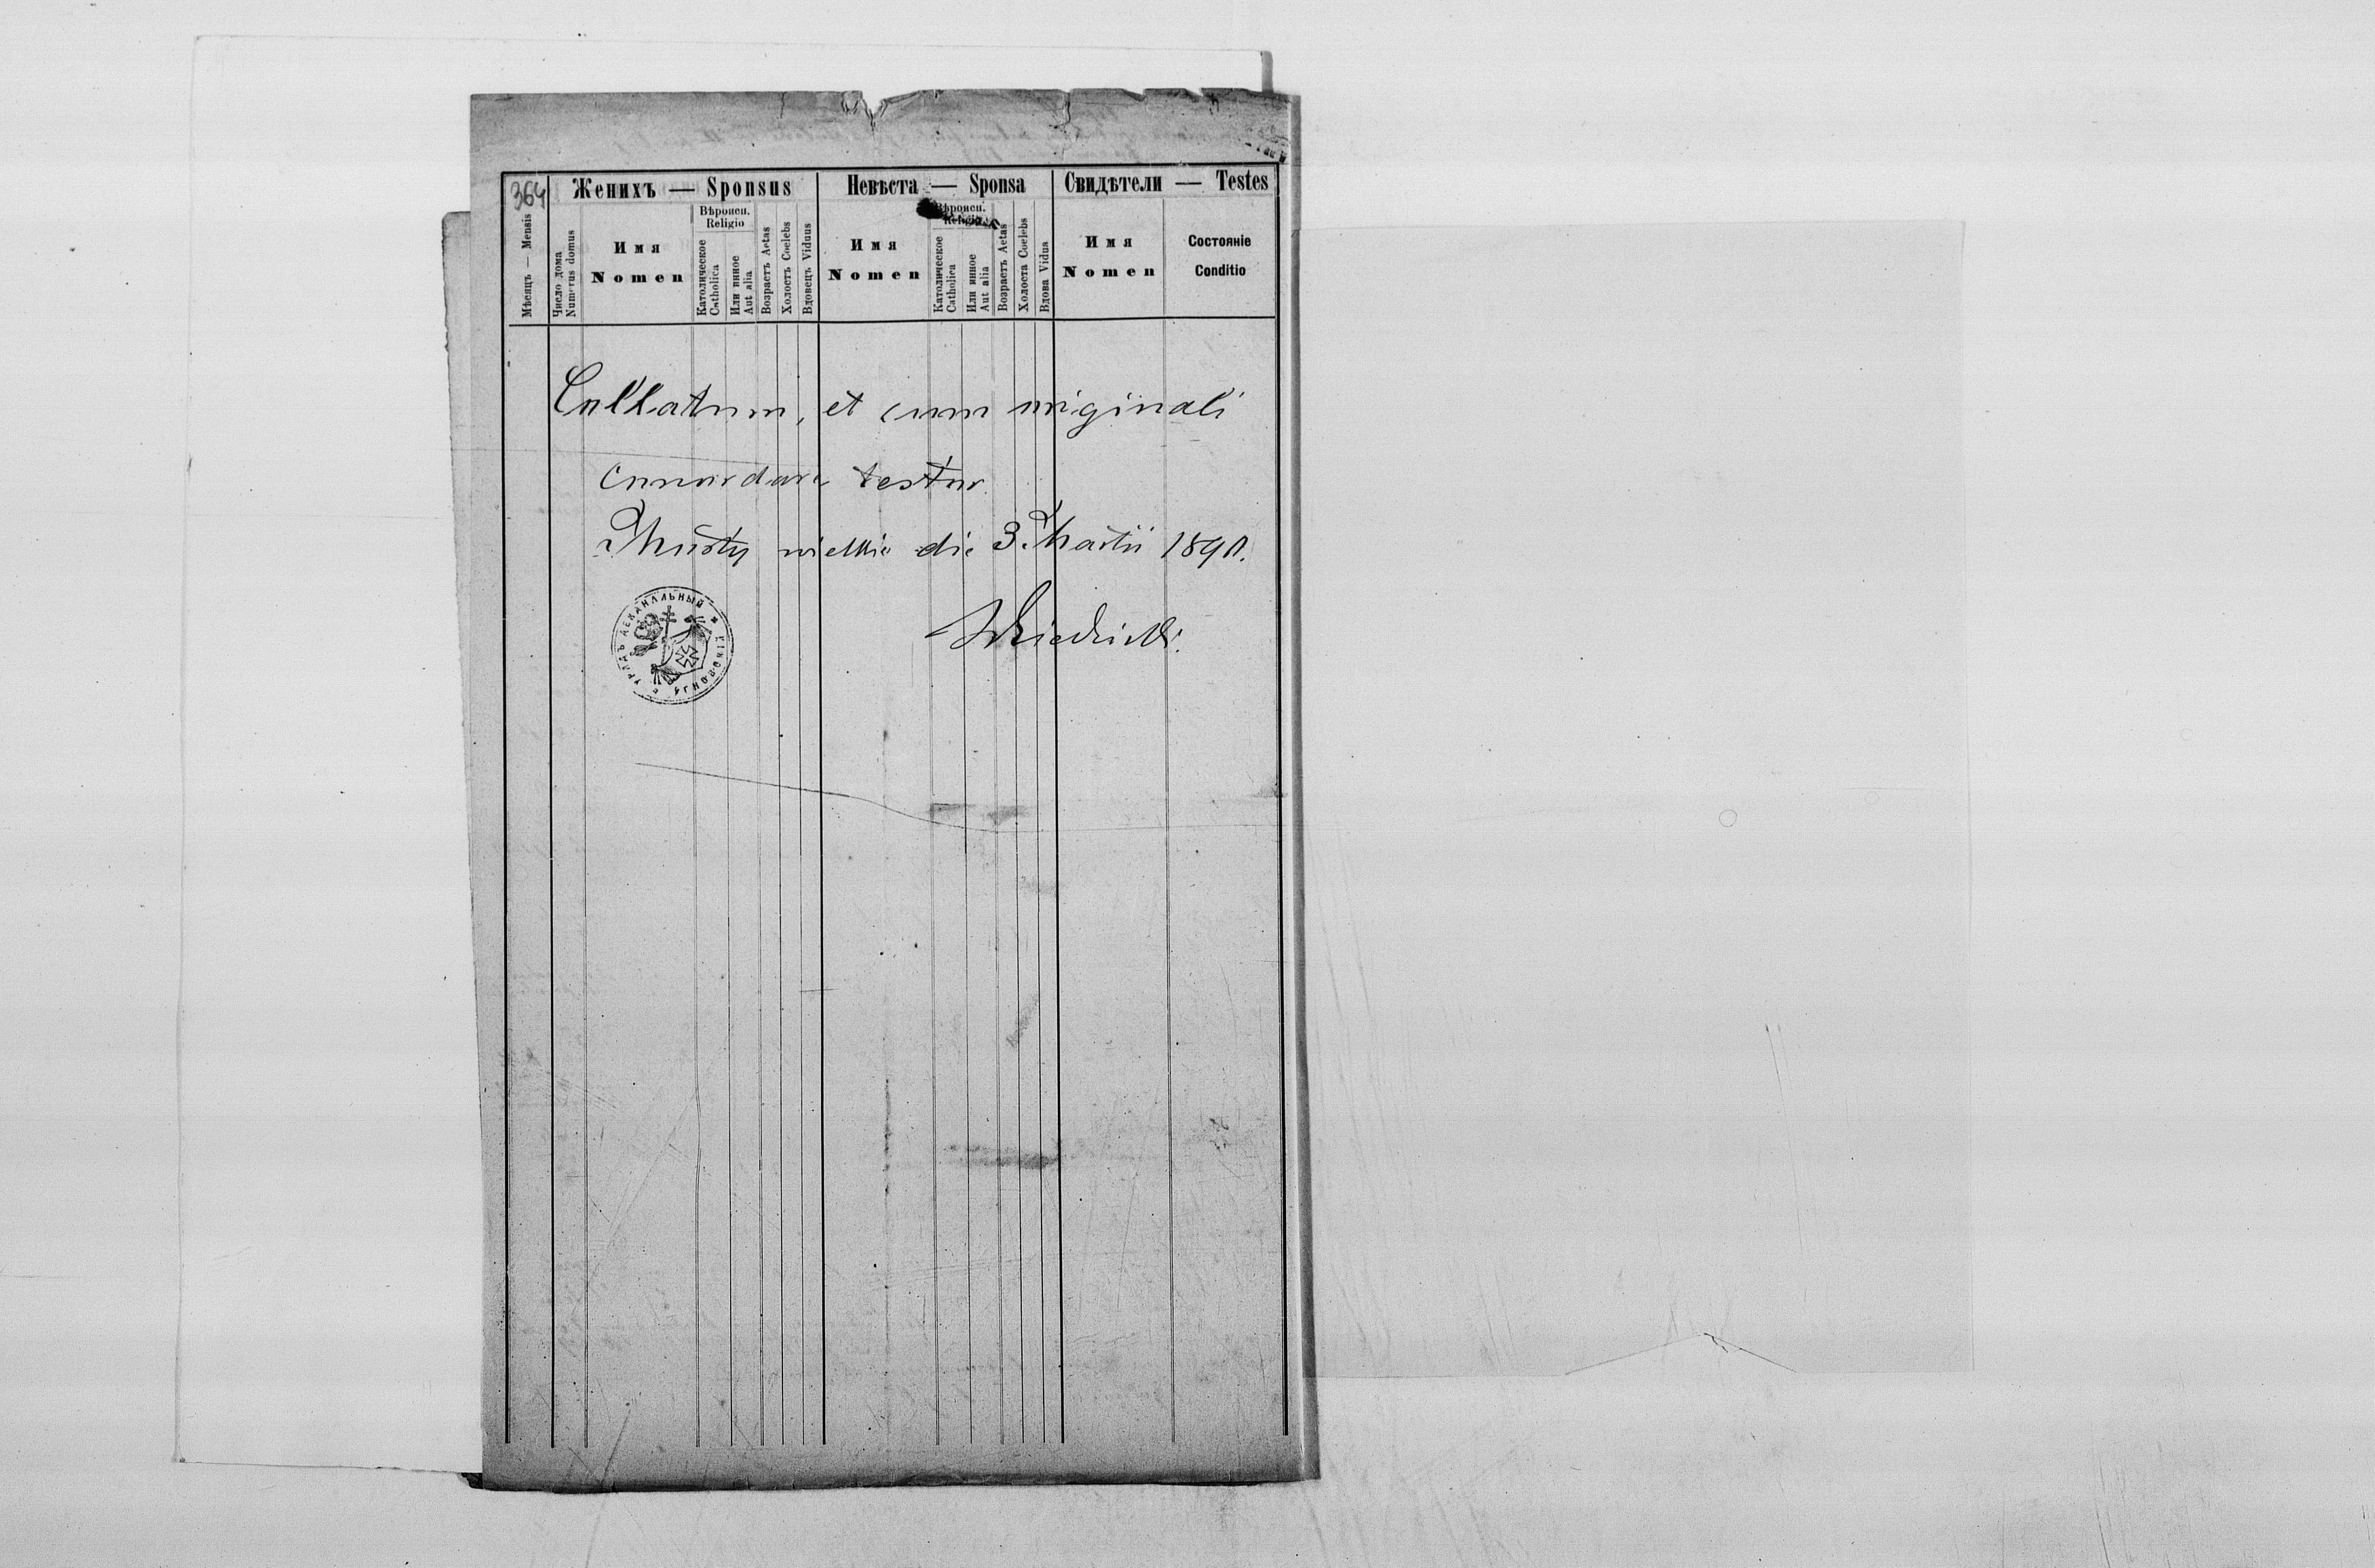 364
Женихъ — Sponsus
Невѣста — Sponsa
Свидѣтели — Testes
Мѣсяцъ — Mensis
Число дома
Numerus domus
Имя
Nomen
Вѣроисп.
Religio
Католическое
Catholica
Или инное
Aut alia
Возрастъ Aetas
Холостъ Coelebs
Вдовецъ Viduus
Имя
Nomen
Вѣроисп.
Religio
Католическое
Catholica
Или инное
Aut alia
Возрастъ Aetas
Холоста Coelebs
Вдова Vidua
Имя
Nomen
Состояніе
Conditio
Collatum, et cum originali
concordare testor
Tłusty wielkie die 3. Martii 1890.
УРЯДЪ ДЕКАНАЛЬНЫЙ